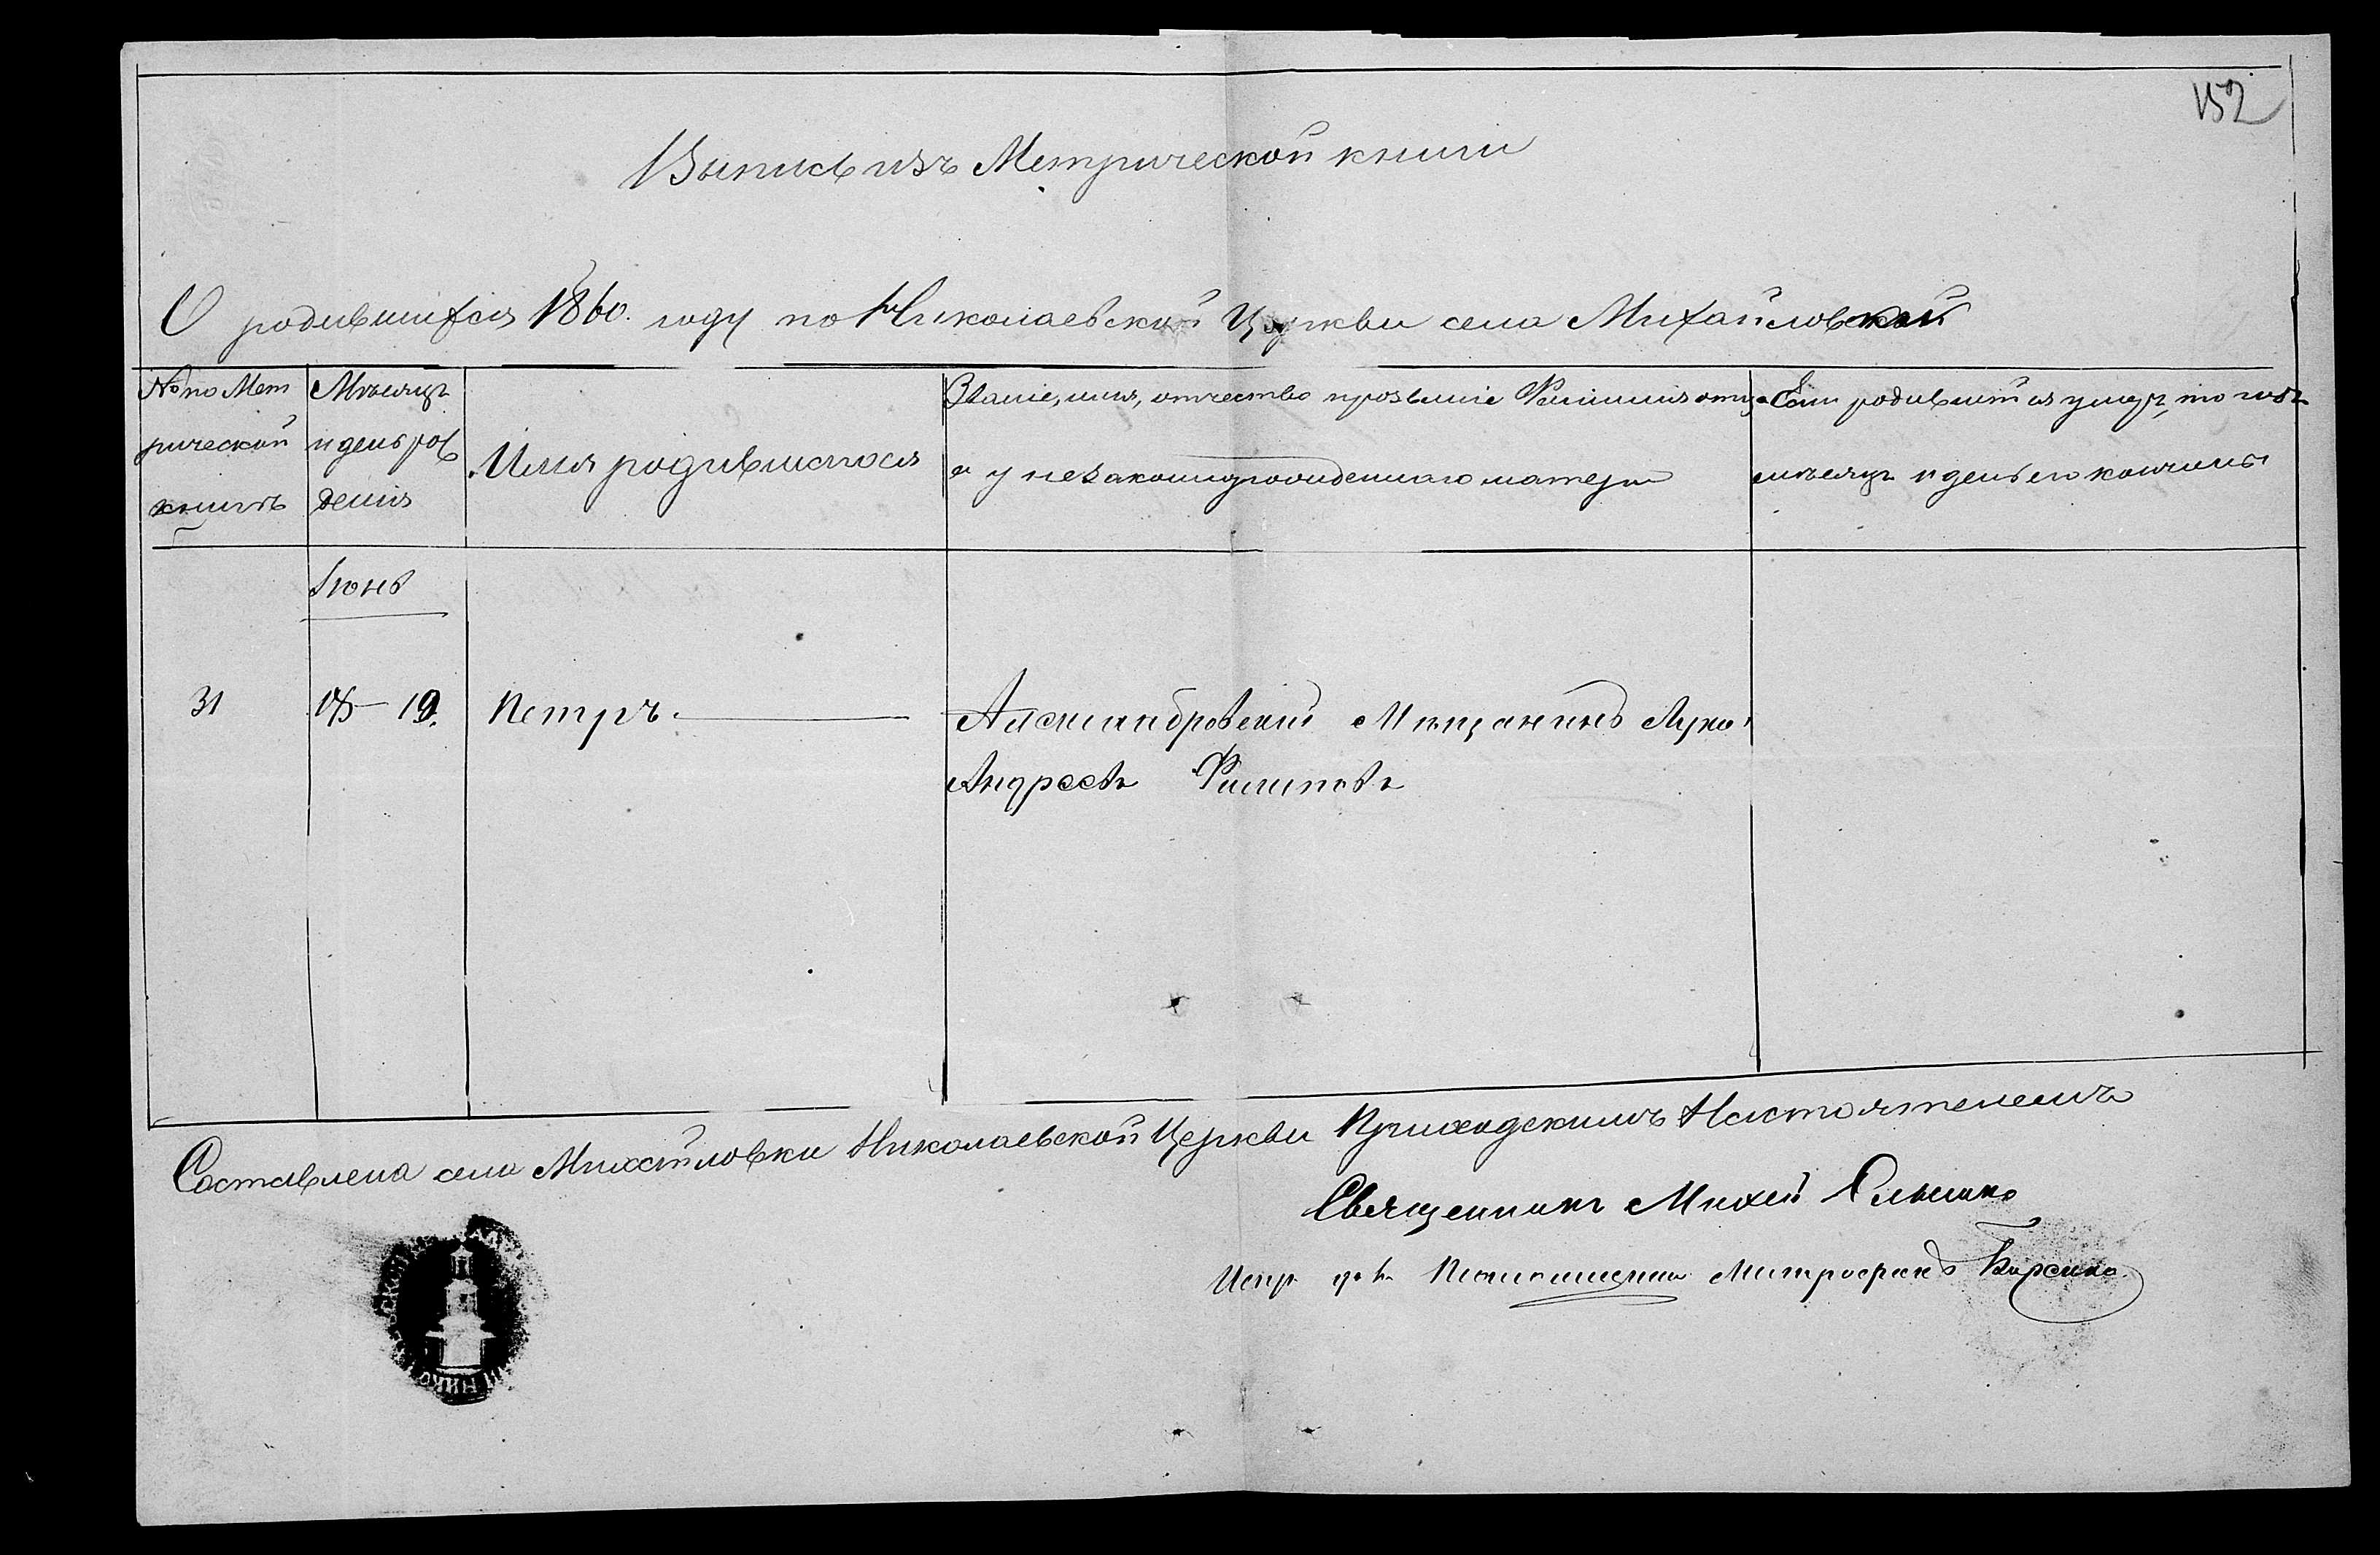 152
Выпись изъ Метрической книги
О родившихся 1860. году по Николаевской Церкви села Михайловской
№ по Мет
рической
книгѣ
Мѣсяцъ
и день рож
денія
Имя родившагося
Званіе, имя, отчество прозваніе Фамилія отца
а у незаконнорожденнаго матери
Если родившійся умеръ, то годъ
мѣсяцъ и день его кончины
Іюнь
31
18 — 19.
Петръ.
Александровскій Мѣщанинъ Лука
Андреевъ Филиповъ
Составлена села Михайловки Николаевской Церкви Приходскимъ Настоятелемъ
Священникъ Михей
Испр. Митрофанъ